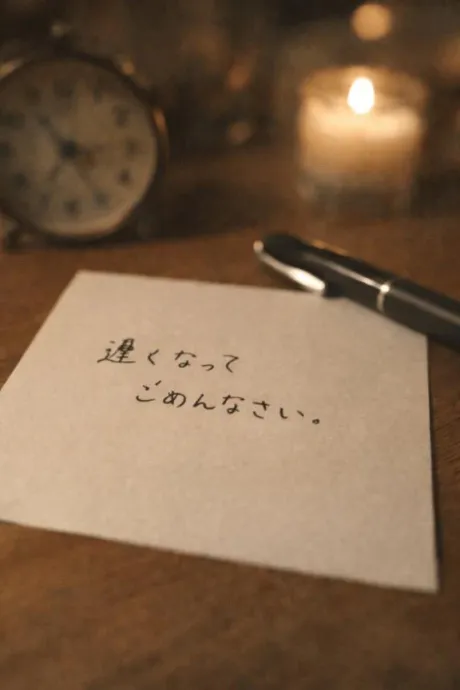 遅くなって
ごめんなさい。